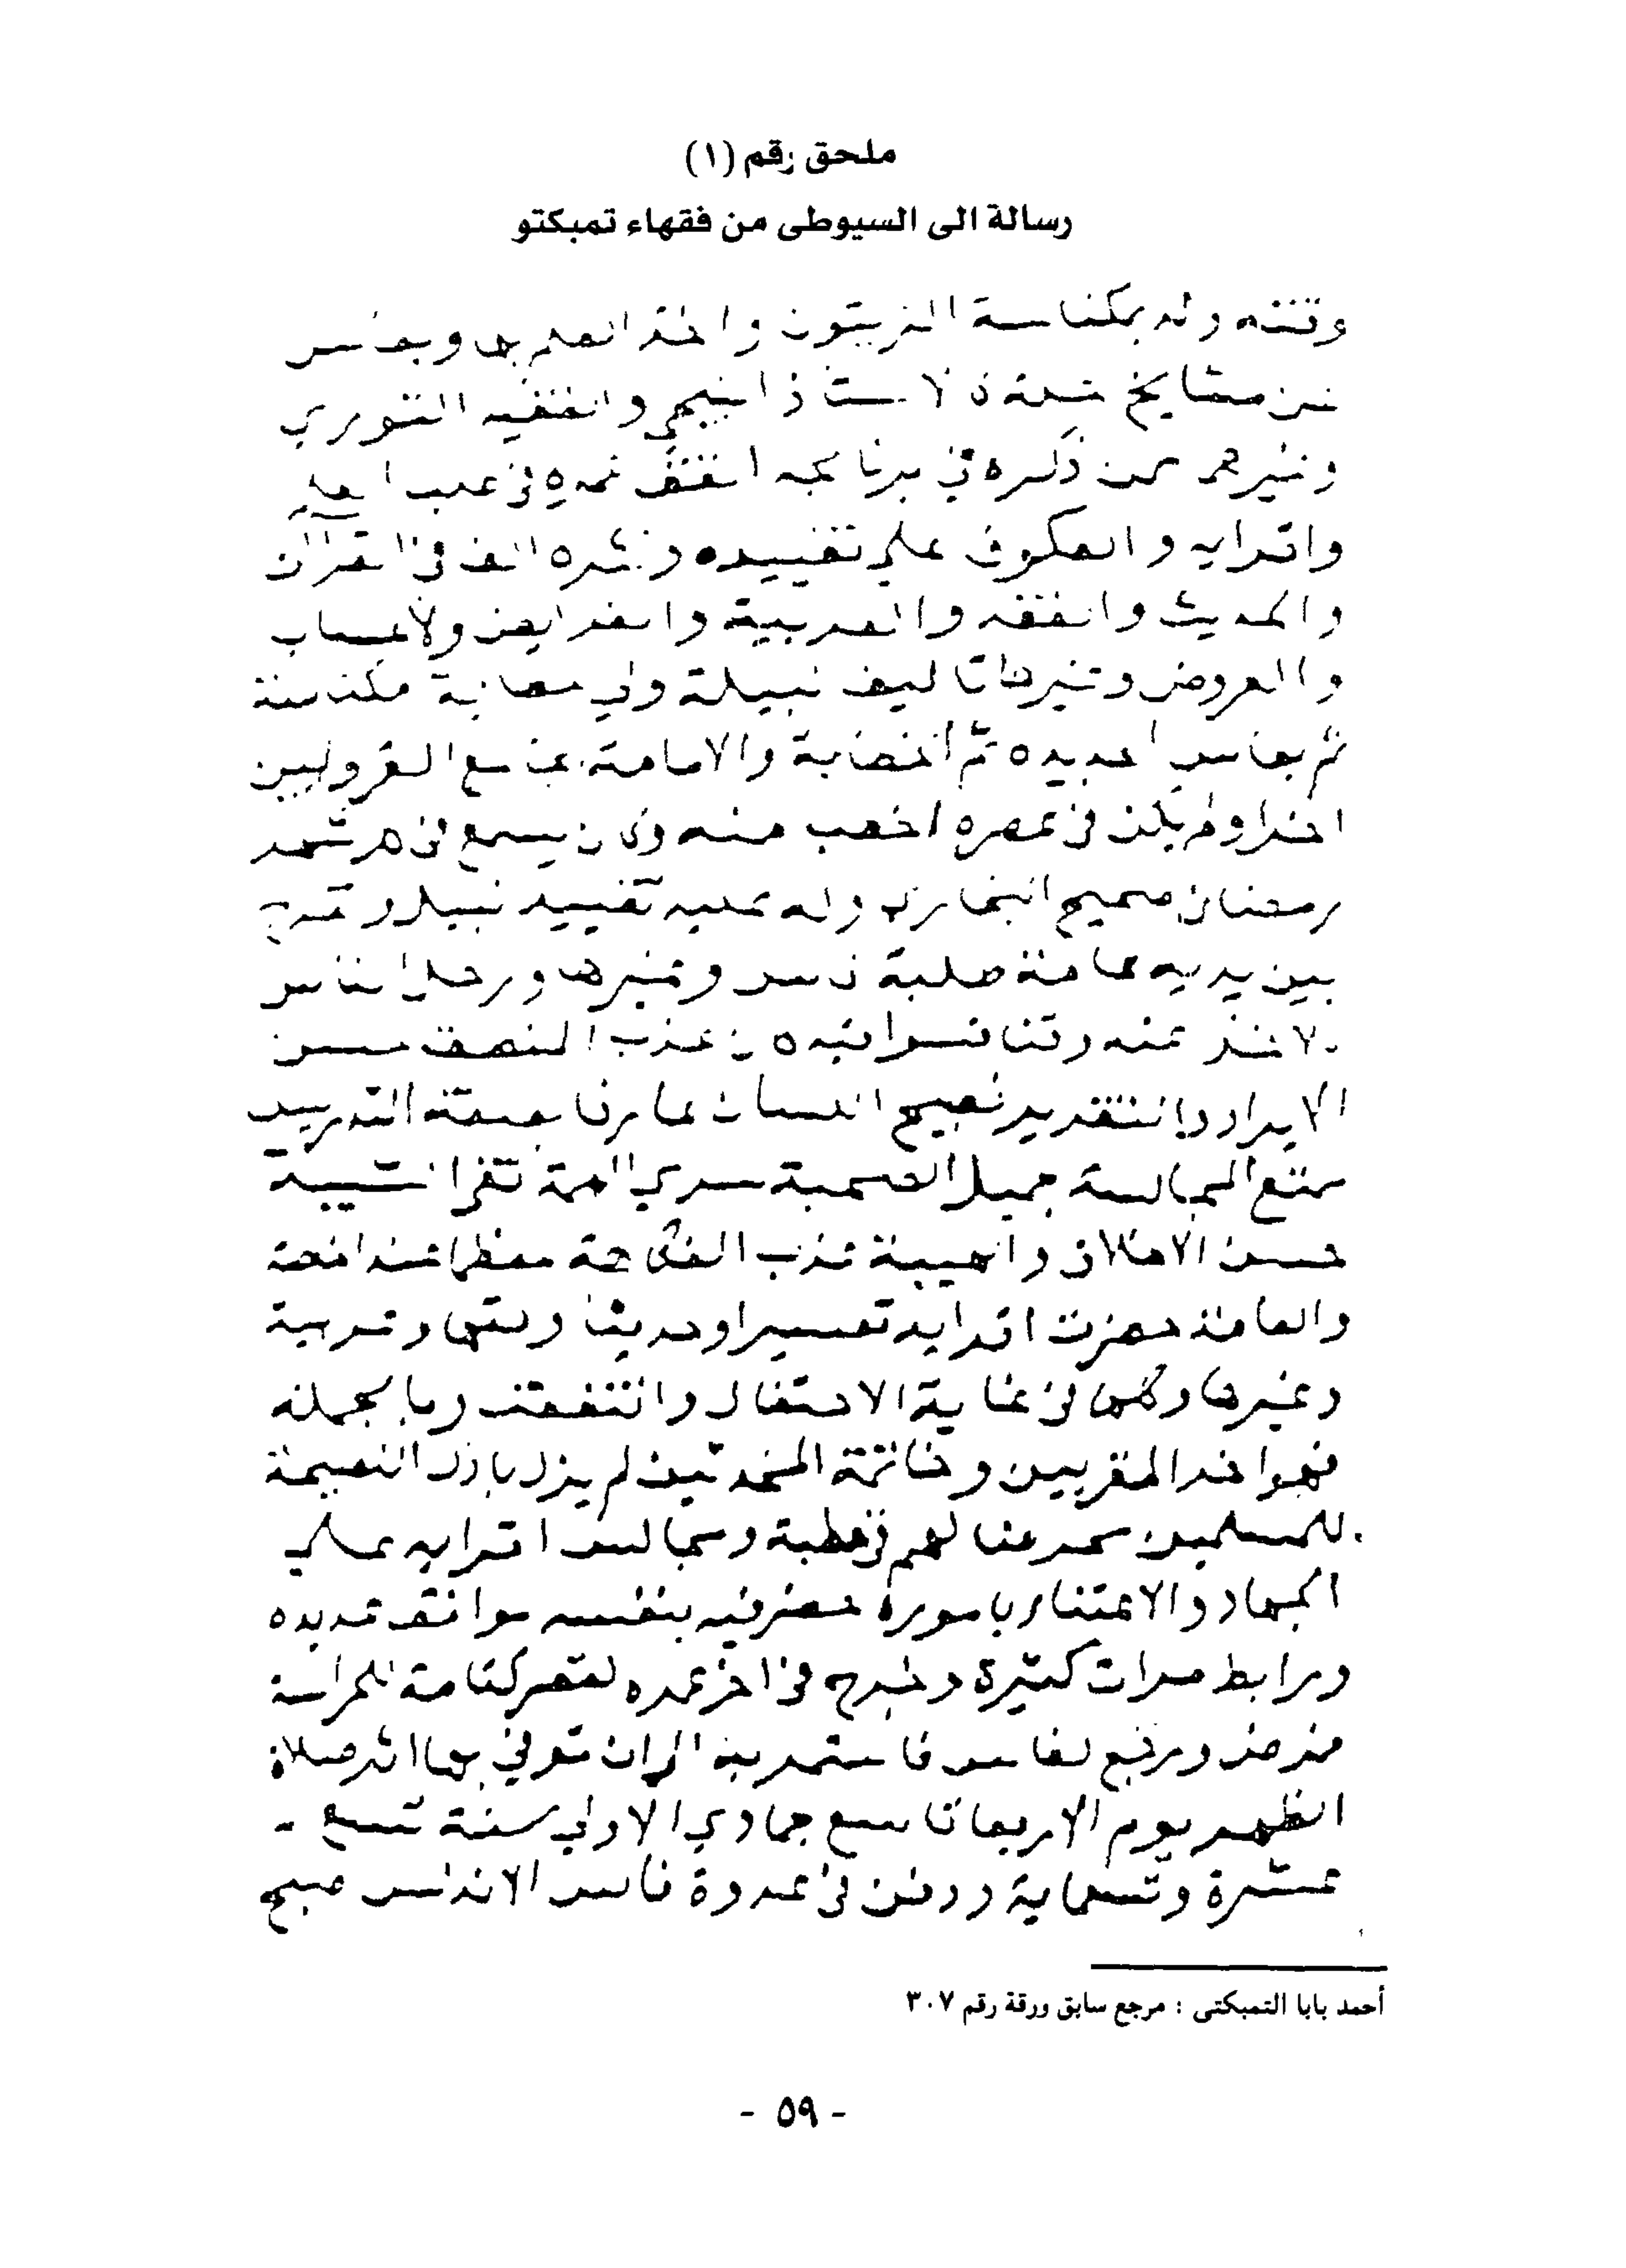 ملحق رقم (١)
رسالة الى السيوطى من فقهاء تمبكتو
وقته ولد بمكناسة الزيتون واخذ العلم بها وبفاس
من مشايخ جلة كالاستاذ النيجي والفقيه القوري
وغيرهم ممن ذكره في برنامجه انفق عمره في طلب العلم
واقرايه والعكوف علي تقييده ونشره الف في القرآن
والحديث والفقه والعربية والفرايض والحساب
والعروض وغيرها تآليف نبيلة ولي خطابة مكناسة
ثم بفاس الجديده ثم الخطابة والامامة بجامع القرويين
اخرا ولم يكن في عصره اخطب منه وكان يسمع في كل شهر
رمضان صحيح البخاري وله عليه تقييد نبيل وتخرج
بين يديه عامة طلبة فاس وغيرها ورحل الناس
للاخذ عنه وتنافسوا فيه كان عذب المنطق حسن
الايراد والتقرير فصيح اللسان عارفا بصنعة التدريس
ممتع المجالسة جميل الصحبة سري الهمة نقي الشيبة
حسن الاخلاق والهيبة عذب الفكاهة معظما عند الخاصة
والعامة حضرت اقرايه تفسيرا وحديثا وفقها وعربية
وغيرها وكلها في غاية الاحتفال وانتفعت به وبالجملة
فهو اخر المقريين وخاتمة المحدثين لم يزل باذل النصيحة
للمسلمين محرضا لهم في خطبة ومجالس اقرايه علي
الجهاد والاعتناء باموره حضر فيه بنفسه مواقف عديده
ورابط مرات كثيرة وخرج في اخر عمره لقصر كتامة للحراسة
فمرض ورجع لفاس فاستمر به الي ان توفي بها اثر صلاة
الظهر يوم الاربعا تاسع جمادي الاولي سنة تسع -
عشرة وتسعماية ودفن في عدوة فاس الاندلس صبح
أحمد بابا التمبكتى : مرجع سابق ورقة رقم ٣٠٧
- ٥٩ -